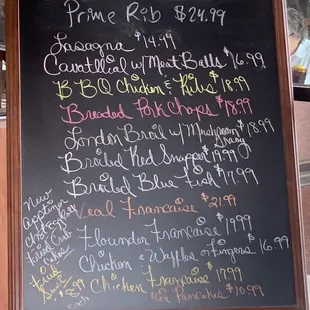 Prime Rib $24.99
Lasagna $14.99
Cavatilli w/ Meat Balls $16.99
BBQ Chicken & Ribs $18.99
Breaded Pork Chops $18.99
London Broil w/ Mushroom Gravy $18.99
Broiled Red Snapper $19.99
Broiled Blue Fish $17.99
Veal Francaise $21.99
Flounder Francaise $19.99
Chicken & Waffles w/ Fingers $16.99
Chicken Francaise $17.99
Pancakes $10.99
New
Appetizer
Fried Crab
Cakes
Fried
$8.99
each